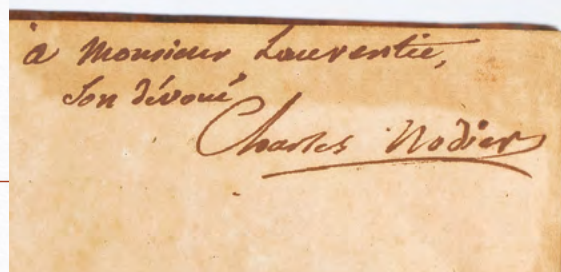 à Monsieur Laurentie,
Son dévoué
Charles Nodier